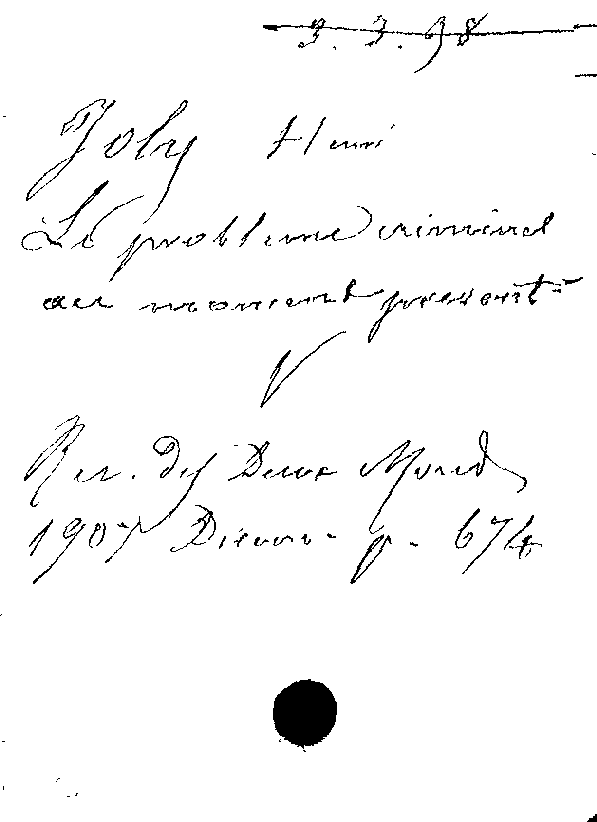 3.3.98
Joly Henri
Le problème criminel
au moment présent
Rev. des Deux Mondes
1907 Décem. p. 674